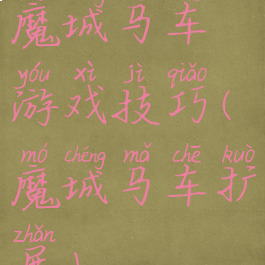 魔城马车
yóu xì jì qiǎo
游戏技巧(
mó chéng mǎ chē kuò
魔城马车扩
zhǎn
展)